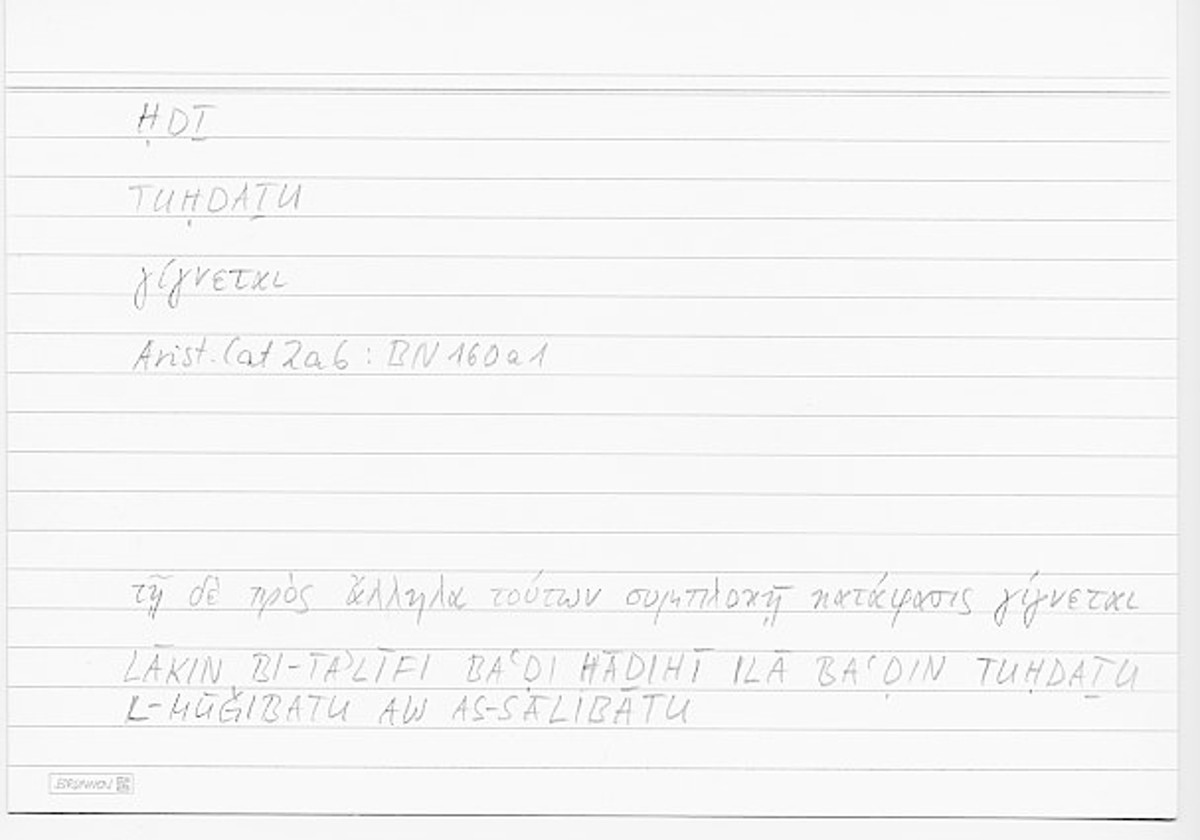 ḤDṮ
TUḤDAṮU
γίγνεται
Arist. Cat 2a6 : BN 160a1
τῇ δὲ πρὸς ἄλληλα τούτων συμπλοκῇ κατάφασις γίγνεται
LĀKIN BI-TAʾLĪFI BAʿḌI HĀḎIHĪ ILĀ BAʿḌIN TUḤDAṮU
L-MŪǦIBATU AW AS-SĀLIBATU
BRUNNEN